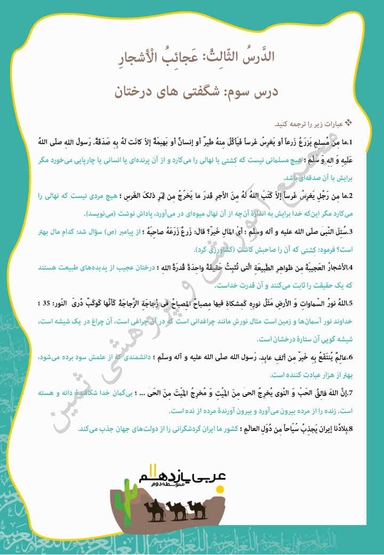 الدَّرسُ الثّالِثُ: عَجائِبُ الْأشجارِ
درس سوم: شگفتی های درختان
❖ عبارات زیر را ترجمه کنید.
1.ما مِن مُسلِمٍ يَزرَعُ زَرعاً أو يَغرِسُ غَرساً فَيَأكُلُ مِنهُ طَيرٌ أو إنسانٌ أو بَهيمَةٌ إلّا كانَت لَهُ بِهِ صَدَقَةٌ. رَسول الله صلی الله
عَليه وَ آله وَ سَلَّم ؛ هیچ مسلمانی نیست که کشتی یا نهالی را می‌کارد و از آن پرنده‌ای یا انسانی یا چارپایی می‌خورد مگر
برایش با آن صدقه‌ای باشد.
2.ما مِن رَجُلٍ يَغرِسُ غَرساً إلّا كَتَبَ اللهُ لَهُ مِنَ الأجرِ قَدرَ ما يَخرُجُ مِن ثَمَرِ ذلِكَ الغَرسِ ؛ هیچ مردی نیست که نهالی را
می‌کارد مگر این‌که خدا برایش به اندازهٔ آن‌چه از آن نهال میوه‌ای در می‌آورد، پاداش نوشت (می‌نویسد).
3.سُئِلَ النَّبی صلی الله علیه و آله وسلم : أیُّ المالِ خَیرٌ؟ قالَ: زَرعٌ زَرَعَهُ صاحِبُهُ ؛ از پیامبر (ص) سؤال شد: کدام مال بهتر
است؟ فرمود: کشتی که آن را صاحبش کاشت (کشاورزی کرد).
4.الأشجارُ العَجيبَةُ مِن ظَواهِرِ الطَّبيعَةِ الَّتي تُثبِتُ حَقيقَةً واحِدَةً قُدرَةَ اللهِ ؛ درختان عجیب از پدیده‌های طبیعت هستند
که یک حقیقت را ثابت می‌کنند و آن قدرت خداست.
5.اللهُ نورُ السَّماواتِ وَ الأرضِ مَثَلُ نورِهِ كَمِشكاةٍ فيها مِصباحٌ المِصباحُ في زُجاجَةٍ الزُّجاجَةُ كَأنَّها كَوكَبٌ دُرّيٌ النّور: 35 ؛
خداوند نور آسمان‌ها و زمین است مثال نورش مانند چراغدانی است که در آن چراغی است، آن چراغ در یک شیشه است،
شیشه گویی آن ستارهٔ درخشان است.
6.عالِمٌ يُنتَفَعُ بِهِ خَيرٌ مِن ألفِ عابِدٍ. رَسول الله صلی الله علیه و آله وسلم ؛ دانشمندی که از علمش سود برده می‌شود،
بهتر از هزار عبادت کننده است.
7.إنَّ اللهَ فالِقُ الحَبِّ وَ النَّوی يُخرِجُ الحَیَّ مِنَ المَيِّتِ وَ مُخرِجُ المَيِّتِ مِنَ الحَيِّ ... ؛ بی‌گمان خدا شکافنده دانه و هسته
است. زنده را از مرده بیرون می‌آورد و بیرون آورندهٔ مرده از نده است.
8.بِلادُنا إيران يَجذِبُ سُيّاحاً مِن دُوَلِ العالَمِ ؛ کشور ما ایران گردشگرانی را از دولت‌های جهان جذب می‌کند.
عربی یازدهم
متوسطه دوم